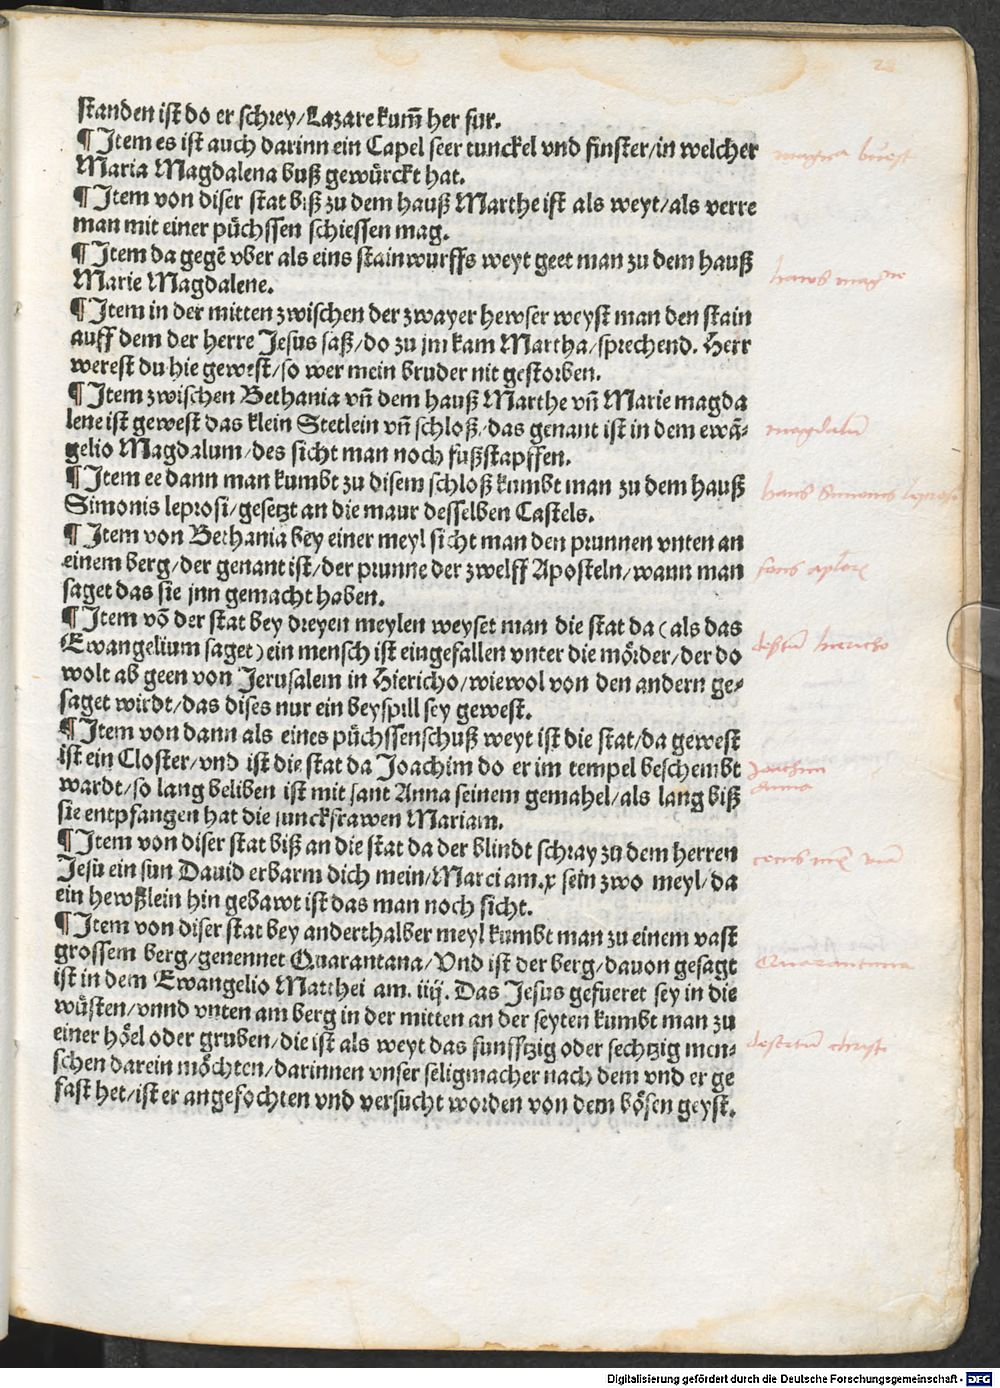 standen ist do er schrey/Lazare kum̄ her fur.
¶ Item es ist auch darinn ein Capel seer tunckel vnd finster/in welcher
Maria Magdalena buß gewürckt hat.
¶ Item von diser stat biß zu dem hauß Marthe ist als weyt/als verre
man mit einer püchssen schiessen mag.
¶ Item da gegē vber als eins stainwurffs weyt geet man zu dem hauß
Marie Magdalene.
¶ Item in der mitten zwischen der zwayer hewser weyst man den stain
auff dem der herre Jesus saß/do zu jm kam Martha/sprechend. Herr
werest du hie gewest/so wer mein bruder nit gestorben.
¶ Item zwischen Bethania vn̄ dem hauß Marthe vn̄ Marie magda
lene ist gewest das klein Stetlein vn̄ schloß/das genant ist in dem ewā⸗
gelio Magdalum/des sicht man noch fußstapffen.
¶ Item ee dann man kumbt zu disem schloß kumbt man zu dem hauß
Simonis leprosi/gesetzt an die maur desselben Castels.
¶ Item von Bethania bey einer meyl sicht man den prunnen vnten an
einem berg/der genant ist/der prunne der zwelff Aposteln/wann man
saget das sie jnn gemacht haben.
¶ Item vō der stat bey dreyen meylen weyset man die stat da (als das
Ewangelium saget) ein mensch ist eingefallen vnter die mörder/der do
wolt ab geen von Jerusalem in Hiericho/wiewol von den andern ge⸗
saget wirdt/das dises nur ein beyspill sey gewest.
¶ Item von dann als eines püchssenschuß weyt ist die stat/da gewest
ist ein Closter/vnd ist die stat da Joachim do er im tempel beschembt
wardt/so lang beliben ist mit sant Anna seinem gemahel/als lang biß
sie entpfangen hat die junckfrawen Mariam.
¶ Item von diser stat biß an die stat da der blindt schray zu dem herren
Jesu ein sun Dauid erbarm dich mein/Marci am.x sein zwo meyl/da
ein hewßlein hin gebawt ist das man noch sicht.
¶ Item von diser stat bey anderthalber meyl kumbt man zu einem vast
grossem berg/genennet Quarantana/Vnd ist der berg/dauon gesagt
ist in dem Ewangelio Matthei am. iiij. Das Jesus gefueret sey in die
wüsten/vnnd vnten am berg in der mitten an der seyten kumbt man zu
einer höel oder gruben/die ist als weyt das funfftzig oder sechtzig men⸗
schen darein möchten/darinnen vnser seligmacher nach dem vnd er ge
fast het/ist er angefochten vnd versucht worden von dem bösen geyst.
magdalū
Joachim
Anna
Quarantana
desertū christi
Digitalisierung gefördert durch die Deutsche Forschungsgemeinschaft - DFG